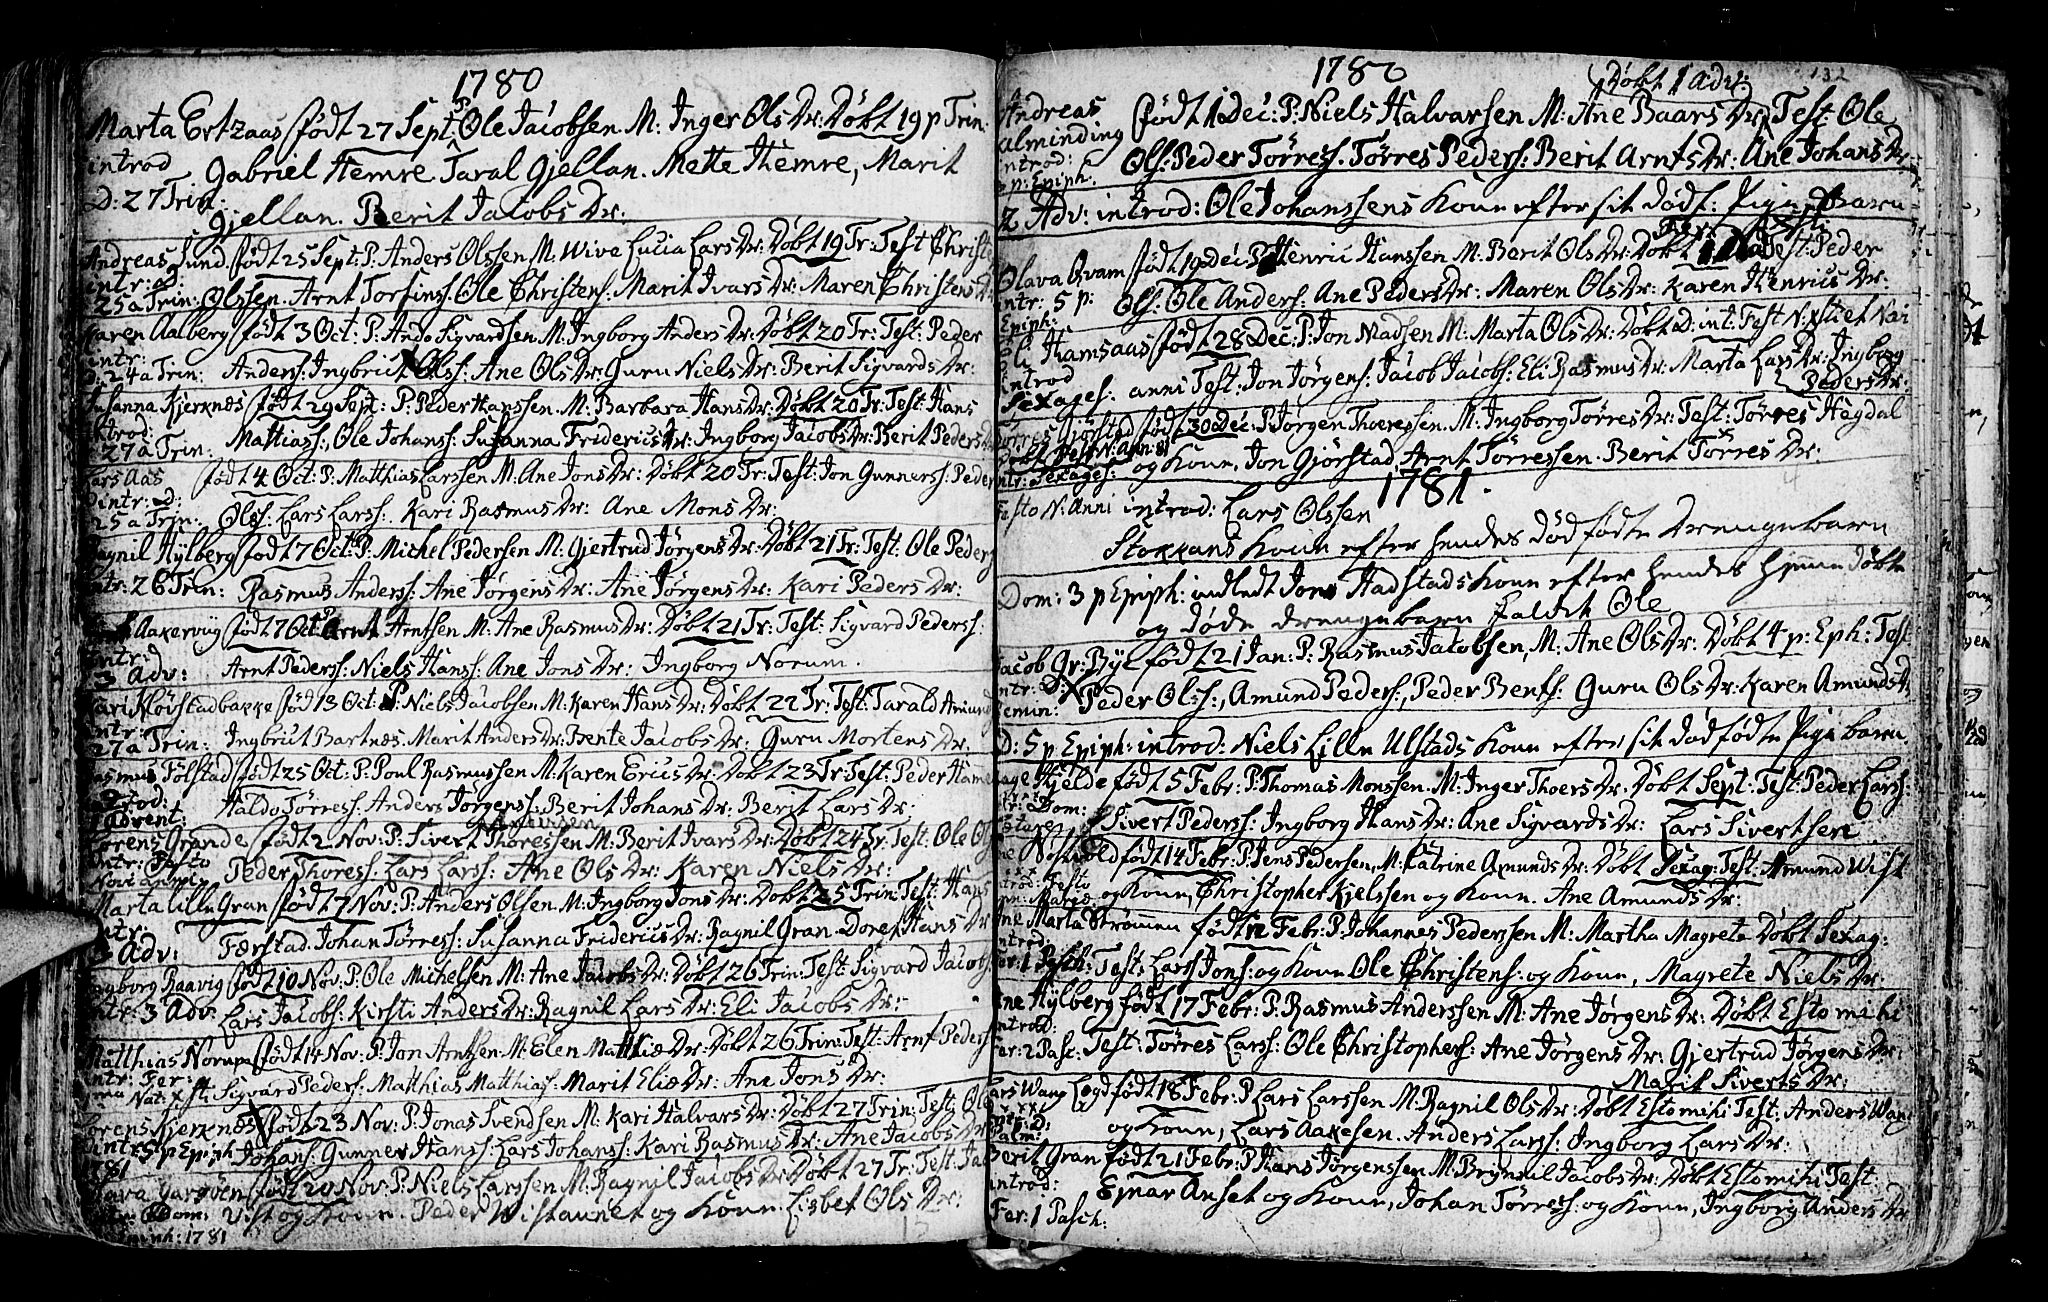 1780
Marta Ertzaas født 27 Sept: P: Ole Jacobsen M: Inger Ols Dr: Døbt 19 p Trin:
introd Gabriel Hemre Taral Gjellan. Mette Hemre, Marit
D: 27 Trin: Gjellan. Berit Jacobs Dr:
Andreas Sund født 25 Sept: P: Anders Olssen M: Wive Lucia Lars Dr: Døbt 19 Tr: Test Christe
intr: d:
25 a Trin: Olssen. Arnt Torfins: Ole Christens: Marit Ivars Dr: Maren Christens Dr
Karen Aalberg født 3 Oct: P: Ando Sigvardsen M: Ingborg Anders Dr: Døbt 20 Tr: Test: Peder
intr:
D: 24 a Trin: Anders: Ingbrict Ols: Ane Ols Dr: Guru Niels Dr: Berit Sigvards Dr:
Susanna Kjerknæs født 29 Sept: P: Peder Hanssen. M: Barbara Hans Dr: Døbt 20 Tr: Test: Hans
introd:
27 a Trin: Mattias:, Ole Johans: Susanna Friderics Dr: Ingborg Jacobs Dr: Berit Peders Dr
Lars Aas født 4 Oct: P: Matthias Larssen M: Ane Jons Dr: Døbt 20 Tr: Test: Jon Gunners: Peder
intr: d:
25 a Trin: Ols: Lars Lars: Kari Rasmus Dr: Ane Mons Dr:
Ragnil Hylberg født 7 Oct: P: Michel Pedersen M: Gjertrud Jørgens Dr: Døbt 21 Tr: Test: Ole Peders
intr: 26 Trin: Rasmus Anders: Ane Jørgens Dr: Ane Jørgens Dr: Kari Peders Dr:
Aakervig født 7 Oct: P: Arnt Arntsen M: Ane Rasmus Dr: Døbt 21 Tr: Test: Sigvard Peders:
intr:
3 Adv: Arnt Peders: Niels Hans: Ane Jons Dr: Ingborg Norum.
Kari Kløvstadbakke fød 13 Oct: P: Niels Jacobsen M: Karen Hans Dr: Døbt 22 Tr: Test: Tarald Amund
intr:
27 a Trin: Ingbrict Bartnæs. Marit Anders Dr: Bente Jacobs Dr: Guru Mortens Dr.
Rasmus Følstad født 25 Oct: P: Poul Rasmussen M: Karen Erics Dr: Døbt 23 Tr: Test: Peder Hame
introd:
1 Advent: Haldo Tørres: Anders Jørgens: Berit Johans Dr: Berit Lars Dr:
Lorens Grande født 2 Nov: P: Sivert Thoressen M: Berit Ivars Dr: Døbt 24 Tr: Test: Ole Ols
intr: Festo
Novi anni Peder Thores: Lars Lars: Ane Ols Dr: Karen Niels Dr:
Marta lille Gran født 7 Nov: P: Anders Olsen M: Ingborg Jons Dr: Døbt 25 Trin: Test: Hans
intr:
3 Adv: Færstad. Johan Tørres: Susanna Friderics Dr: Ragnil Gran Doret Hans Dr
Ingborg Raavig født 10 Nov: P: Ole Michelsen M: Ane Jacobs Dr: Døbt 26 Trin: Test: Sigvard Jacobs
intr: 3 Adv. Lars Jacobs: Kirsti Anders Dr: Ragnil Lars Dr: Eli Jacobs Dr:
Matthias Norum født 14 Nov: P: Jon Arntsen M: Elen Matthiæ Dr: Døbt 26 Trin: Test: Arnt Peders
intr: Fer:
Nat: Xsti Sigvard Peders: Matthias Matthias: Marit Eliæ Dr: Ane Jons Dr:
Lorens Kjerknæs født 23 Nov: P: Jonas Svendsen M: Kari Halvars Dr: Døbt 27 Trin: Test: Ole
intr: 5 p Epiph Johans: Gunner Hans: Lars Johans: Kari Rasmus Dr: Ane Jacobs Dr
1781
født 20 Nov: P: Niels Larssen M: Ragnil Jacobs Dr: Døbt 27 Tr: Test: Jac
Dom: Vist og Koun. Peder Wistaunet og Koun. Lisbet Ols Dr:
Epiph: 1781
1780
Døbt 1 Adv: 132
Andreas født 1 Dec: P: Niels Halvarsen M: Ane Baars Dr: Test: Ole
Alminding
introd:
p: Epiph. Ols: Peder Tørres: Tørres Peders: Berit Arnts Dr: Ane Johans Dr:
2 Adv: introd: Ole Johanssens Koun efter sit dødf: Pige Barn
Olava Qvam født 19 Dec: P: Henric Hanssen M: Berit Ols Dr: Døbt Test: Peder
intr: 5 p:
Epiph: Ols: Ole Anders: Ane Peders Dr: Maren Ols Dr: Karen Henrics Dr:
Eli Hamsaas født 28 Dec: P: Jon Madsen M: Marta Ols Dr: Døbt D: int: Fest N: Xsti et Nov
introd
Sexages: anni Test: Jon Jørgens: Jacob Jacobs: Eli Rasmus Dr: Marta Lars Dr: Ingborg
Peders Dr:
Tørres Gjørstad født 30 Dec: P: Jørgen Thoressen. M: Ingborg Tørres Dr: Test: Tørres Hegdal
Døbt Fest N: Ann: 81
intr: Sexages: og Koun, Jon Gjørstad, Arnt Tørressen. Berit Tørres Dr:
1781.
Festo N: Anni introd: Lars Olssen
Stokkans Koun efter hendes død fødte Drengebarn
Dom: 3 p Epiph: indledt Jon Hadstads Koun efter hendes hjemme døbte
og døde drengebarn kaldet Ole
Jacob Gr: Bye født 21 Jan: P: Rasmus Jacobsen, M: Ane Ols Dr: Døbt 4 p: Eph: Test
intr: D:
Remin: Peder Ols:, Amund Peders:, Peder Bents: Guru Ols Dr: Karen Amunds Dr
D: 5 p Epiph: introd: Niels Lille Ulstads Koun efter sit dødfødte Pige barn.
Hjelde født 5 Febr: P: Thomas Monssen. M: Inger Thoers Dr: Døbt Sept: Test: Peder Lars:
Dom:
Sivert Peders: Ingborg Hans Dr: Ane Sigvards Dr: Lars Sivertsen
Nøstvold født 14 Febr: P: Jens Pedersen, M: Catrine Amunds Dr: Døbt Sexag: Test: Amund Wist
introd: Festo
og Koun, Christopher Kjelssen og Koun. Ane Amunds Dr:
Ane Marta Strømmen født 12 Febr: P: Johannes Pederssen M: Martha Magrete Døbt Sexag:
introd:
Fer: 1 Pasch: Test: Lars Jons: og Koun Ole Christens: og Koun, Magrete Niels Dr:
Ane Hylberg født 17 Febr: P: Rasmus Anderssen M: Ane Jørgens Dr: Døbt Estomihi
introd:
Fer: 2 Pasc: Test: Tørres Lars: Ole Christophers: Ane Jørgens Dr: Gjertrud Jørgens Dr:
Marit Siverts Dr:
Lars Wang Legd født 18 Febr: P: Lars Larssen M: Ragnil Ols Dr: Døbt Estomihi Test: Anders Wang
Palm: og Koun, Lars Aakesen. Anders Lars: Ingborg Lars Dr:
Berit Gran født 21 Febr: P: Hans Jørgenssen M: Brynnil Jacobs Dr: Døbt Estomihi Test:
introd:
Fer: 1 Pasch: Ejnar Anset og Koun, Johan Tørres: og Koun, Ingborg Anders Dr